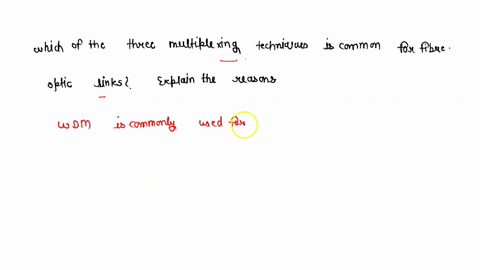 which of the three multiplexing techniques is common for fibre.
optic links? Explain the reasons
WDM is commonly used for